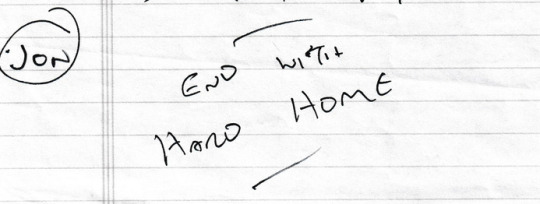 JON
END WITH
HARD HOME